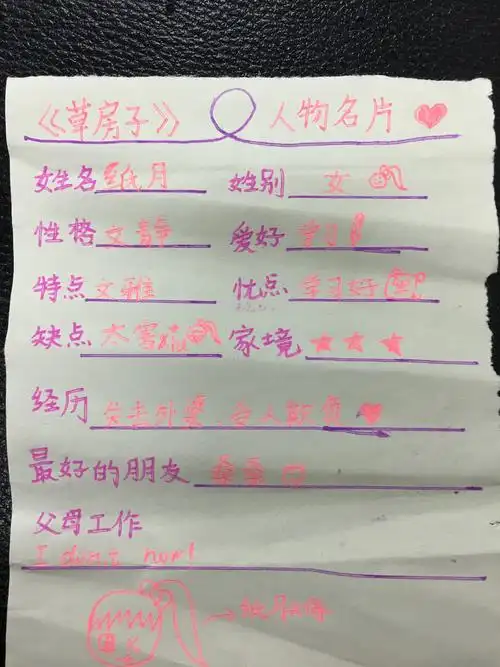 《草房子》 人物名片
姓名 纸月 姓别 女
性格 文静 爱好 学习
特点 文雅 忧点 学习好
缺点 太害羞 家境 ★★★
经历 失去外婆 被人欺负
最好的朋友 桑桑
父母工作
I don't nowl
纸月